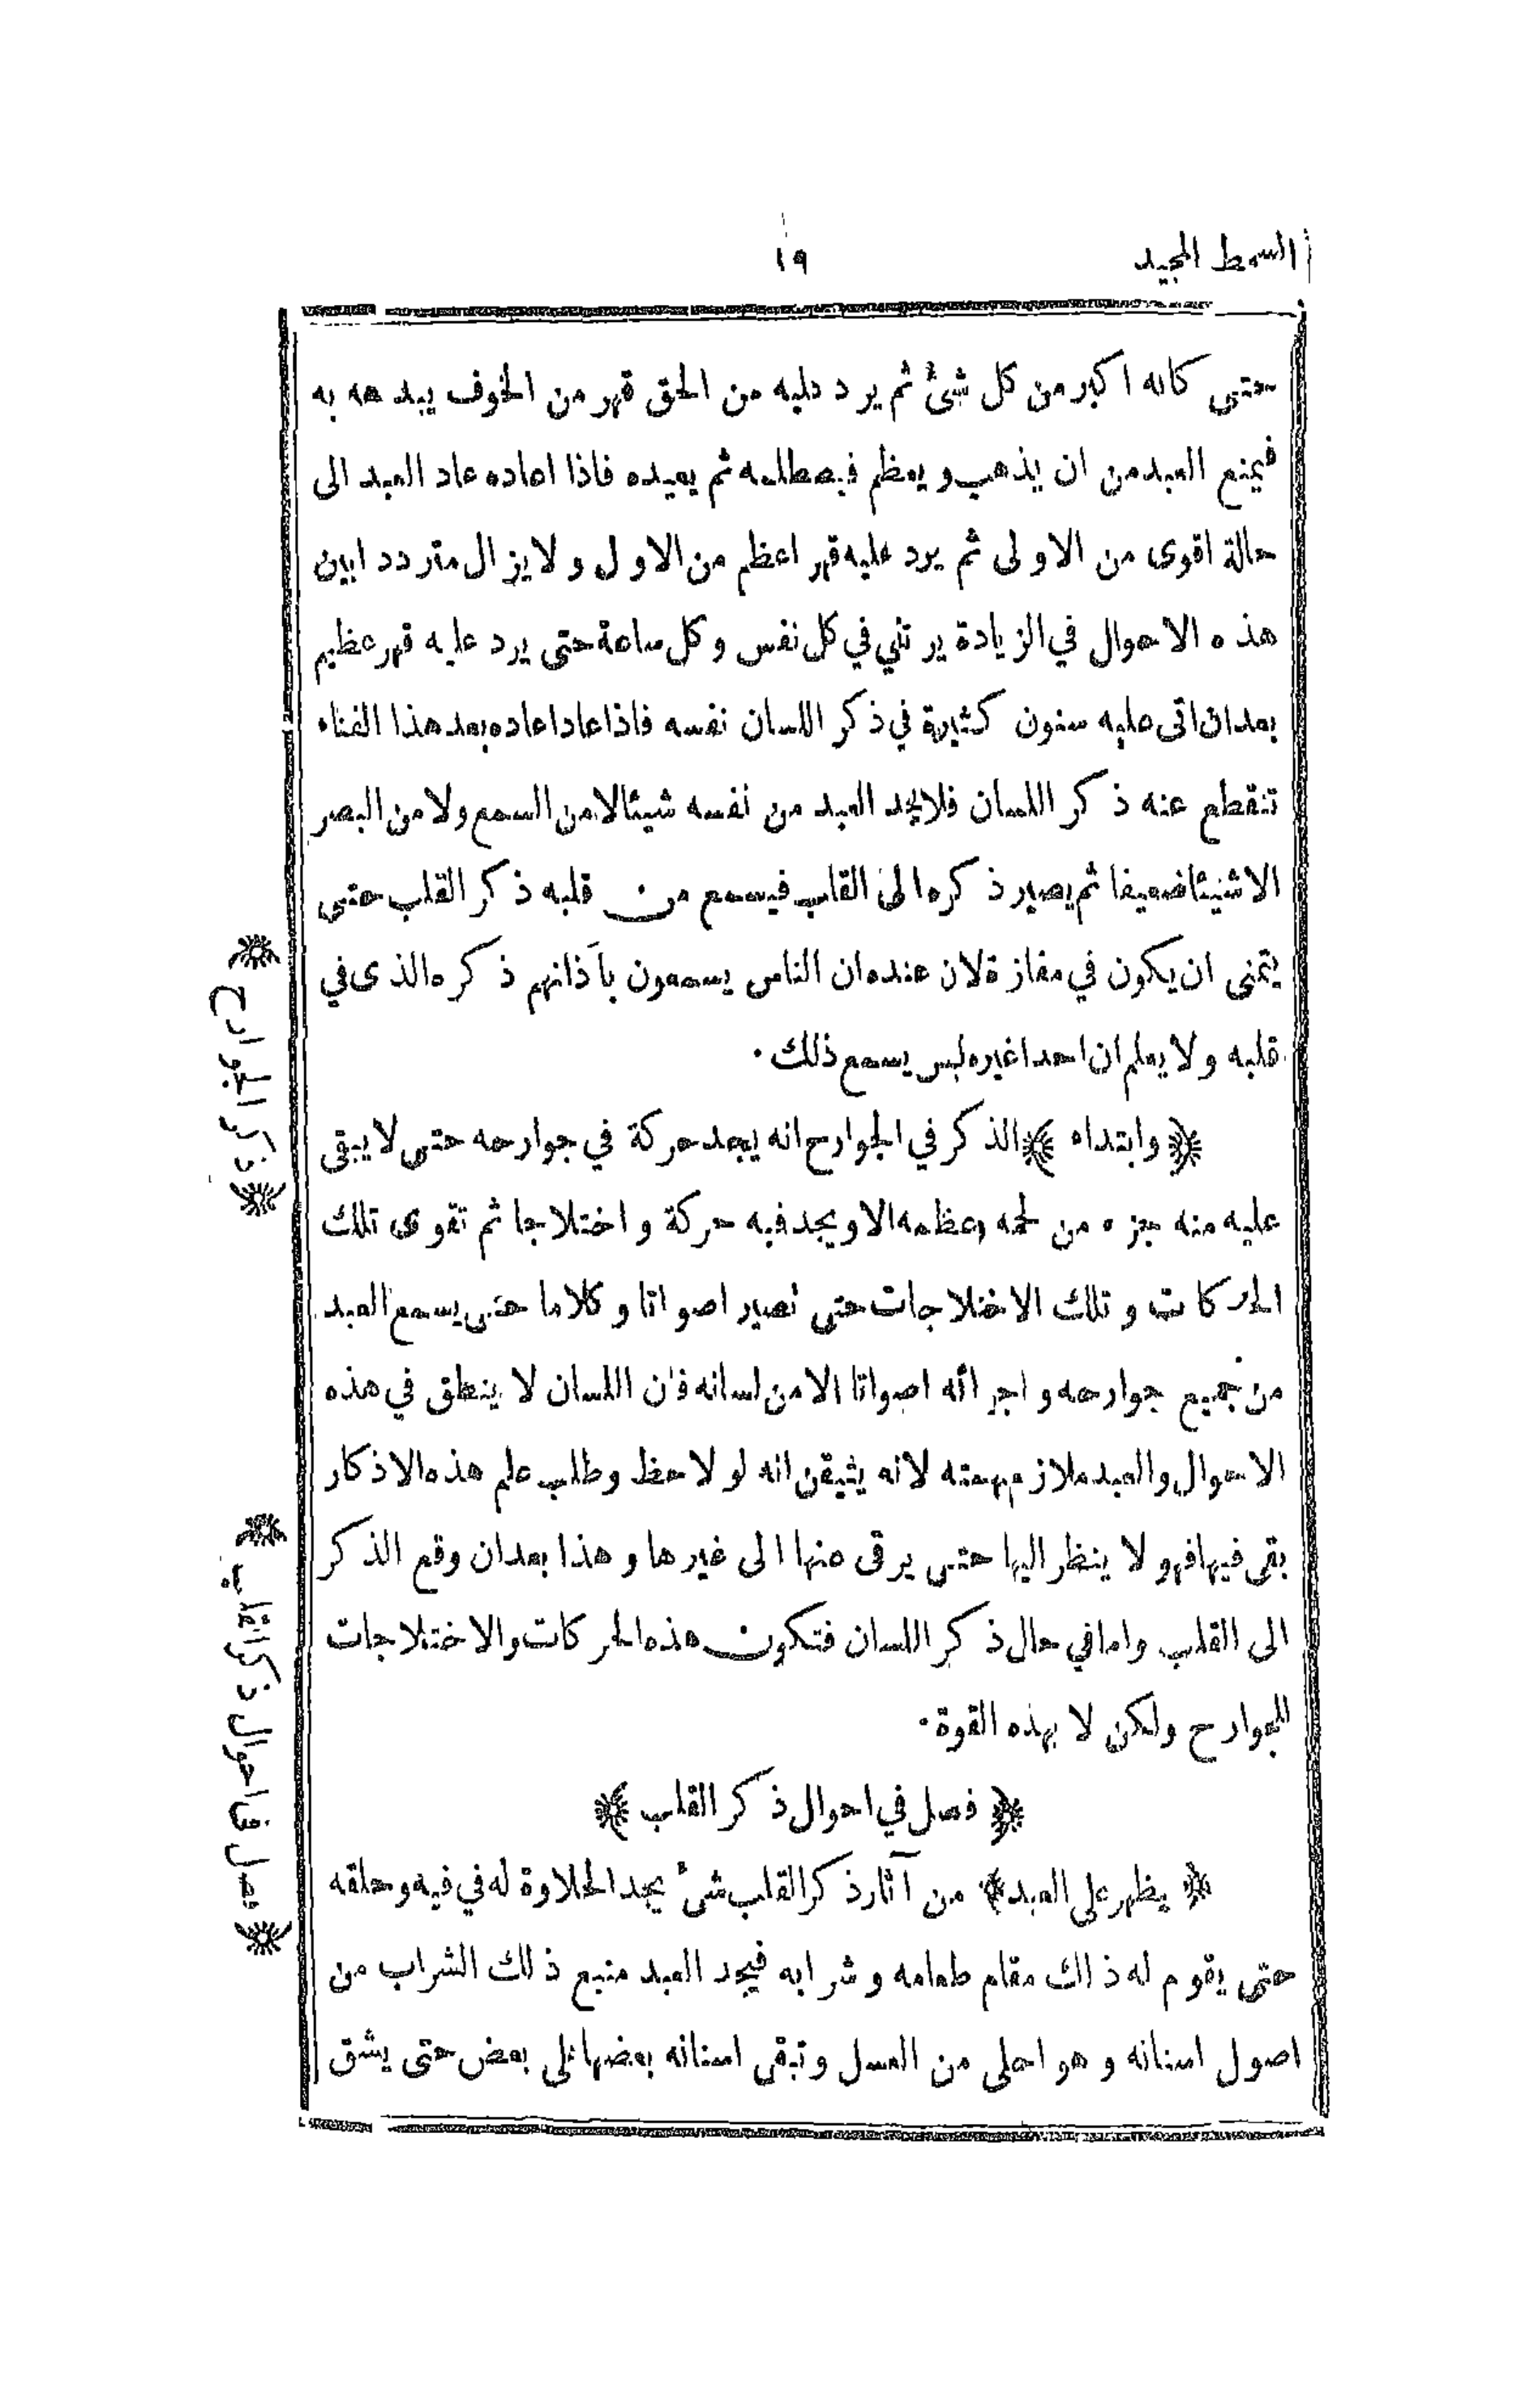 السمط المجيد
١٩
حتى كانه اكبر من كل شئ ثم يرد عليه من الحق قهر من الخوف يبدهه به
فيمنع العبد من ان يذهب ويعظم فيصطلمه ثم يعيده فاذا اعاده عاد العبد الى
حالة اقوى من الاولى ثم يرد عليه قهر اعظم من الاول ولايزال مترددا بين
هذه الاحوال في الزيادة يرتقي في كل نفس وكل ساعة حتى يرد عليه قهر عظيم
بعد ان اتى عليه سنون كثيرة في ذكر اللسان نفسه فاذا عاد اعاده بعد هذا الفناء
تنقطع عنه ذكر اللسان فلايجد العبد من نفسه شيئا لامن السمع ولا من البصر
الا شيئا ضعيفا ثم يصير ذكره الى القلب فيسمع من قلبه ذكر القلب حتى
يتمنى ان يكون في مفازة لان عنده ان الناس يسمعون بآذانهم ذكره الذى في
قلبه ولا يعلم ان احدا غيره ليس يسمع ذلك.
﴿ وابتداه ﴾ الذكر في الجوارح انه يجد حركة في جوارحه حتى لا يبقى
عليه منه جزء من لحمه وعظمه الا ويجد فيه حركة واختلاجا ثم تقوى تلك
الحركات وتلك الاختلاجات حتى تصير اصواتا وكلاما حتى يسمع العبد
من جميع جوارحه واجزائه اصواتا الا من لسانه فان اللسان لا ينطق في هذه
الاحوال والعبد ملازم بهمته لانه يثيقن انه لو لاحظ وطلب علم هذه الاذكار
بقى فيها فهو لا ينظر اليها حتى يرقى منها الى غيرها وهذا بعد ان وقع الذكر
الى القلب واما في حال ذكر اللسان فتكون هذه الحركات والاختلاجات
للجوارح ولكن لا بهذه القوة.
﴿ فصل في احوال ذكر القلب ﴾
﴿ يظهر على العبد ﴾ من آثار ذكر القلب شئ يجد الحلاوة له في فيه وحلقه
حتى يقوم له ذلك مقام طعامه وشرابه فيجد العبد منبع ذلك الشراب من
اصول اسنانه وهو احلى من العسل وتبقى اسنانه بعضها على بعض حتى يشق
﴿ ذكر الجوارح ﴾
﴿ فصل فى احوال ذكر القلب ﴾